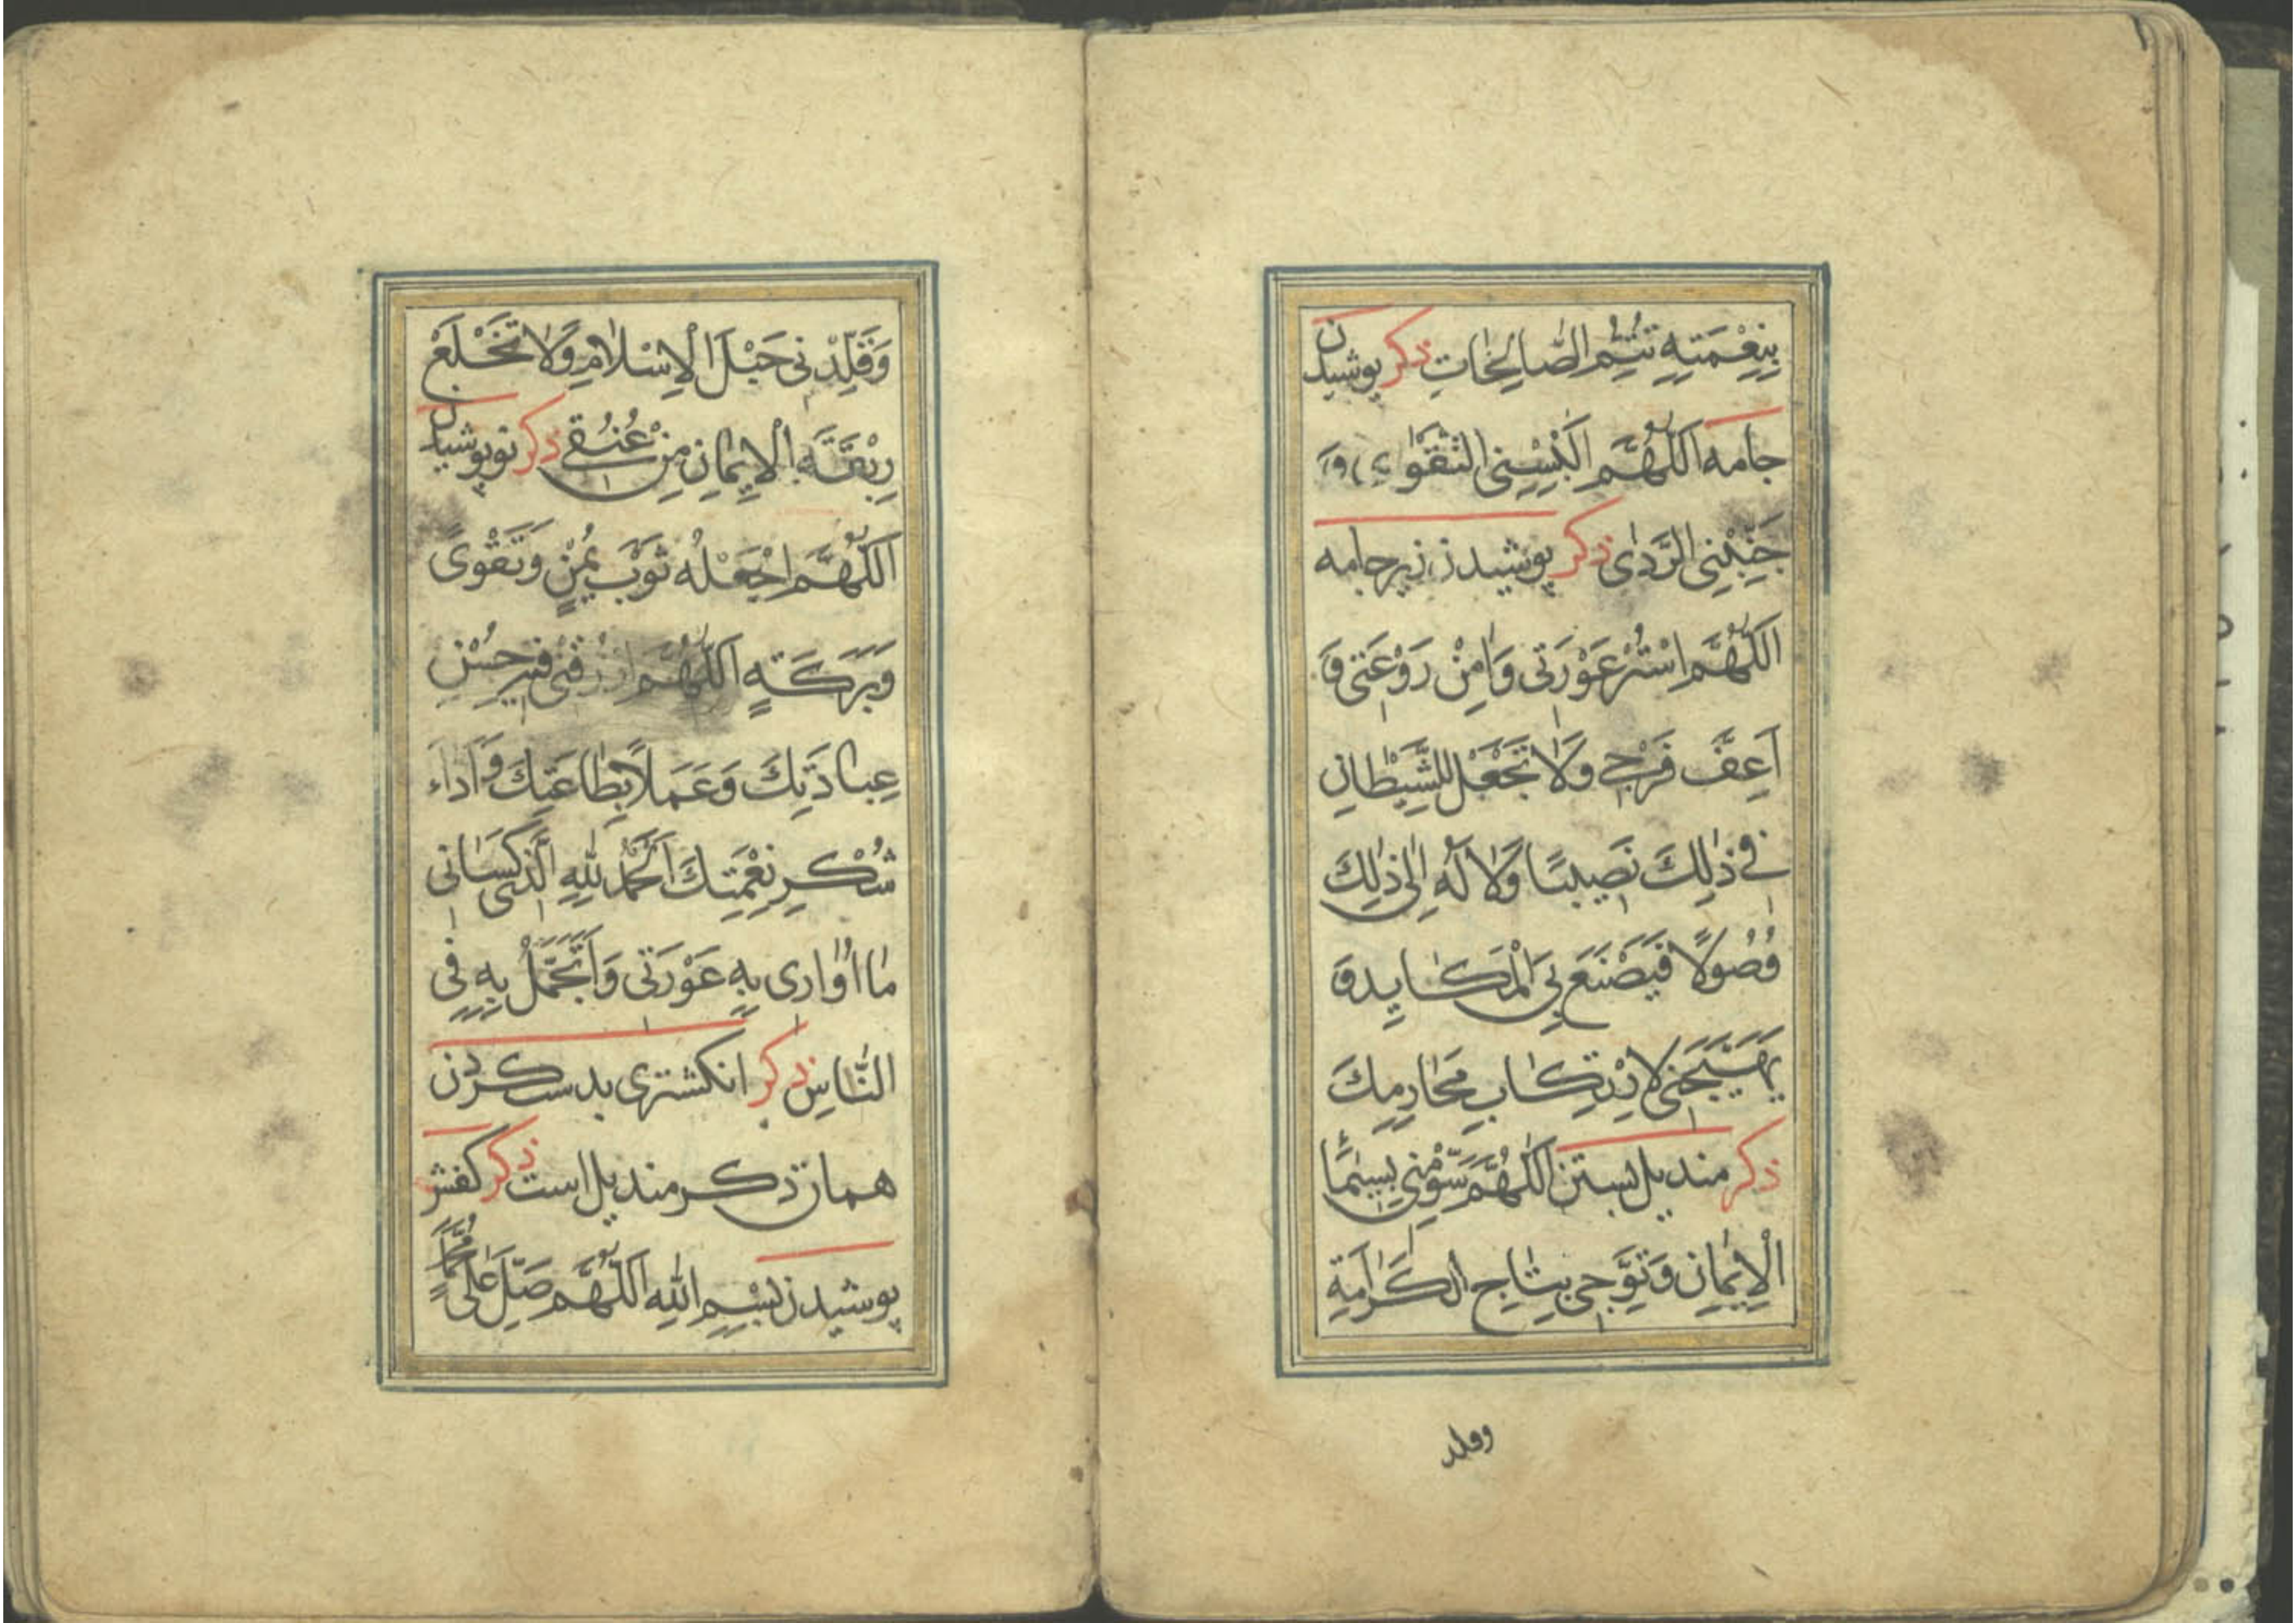 بِنِعْمَتِهِ تَتِمُّ الصَّالِحَاتِ ذكر پوشیدن
جامه اَللّٰهُمَّ اَلْبِسْنِی التَّقْوٰی وَ
جَنِّبْنِی الرَّدٰی ذكر پوشیدن زیرجامه
اَللّٰهُمَّ اسْتُرْ عَوْرَتی وَاٰمِنْ رَوْعَتی وَ
اَعِفَّ فَرْجی وَلَا تَجْعَلْ لِلشَّیْطَانِ
فی ذٰلِكَ نَصیبًا وَلَا لَهُ اِلٰی ذٰلِكَ
وُصُولًا فَیَصْنَعَ بِیَ الْمَكَایِدَ وَ
یُهَیِّجَنی لِارْتِكَابِ مَحَارِمِكَ
ذكر مندیل بستن اَللّٰهُمَّ سَوِّمْنی بِسیمَاءِ
الْاِیمَانِ وَتَوِّجْنی بِتَاجِ الْكَرَامَةِ
وقلد
وَقَلِّدْنی حَبْلَ الْاِسْلَامِ وَلَا تَخْلَعْ
رِبْقَةَ الْاِیمَانِ مِنْ عُنُقی ذكر نوپوشیدن
اَللّٰهُمَّ اجْعَلْهُ ثَوْبَ یُمْنٍ وَتَقْوًی
وَبَرَكَةٍ اَللّٰهُمَّ ارْزُقْنی فیهِ حُسْنَ
عِبَادَتِكَ وَعَمَلًا بِطَاعَتِكَ وَاَدَاءَ
شُكْرِ نِعْمَتِكَ اَلْحَمْدُ لِلّٰهِ الَّذی كَسَانی
مَا اُوَاری بِهِ عَوْرَتی وَاَتَجَمَّلُ بِهِ فِی
النَّاسِ ذكر انكشتری بدست كردن
همان ذكر مندیل است ذكر كفش
پوشیدن بِسْمِ اللّٰهِ اَللّٰهُمَّ صَلِّ عَلٰی مُحَمَّدٍ